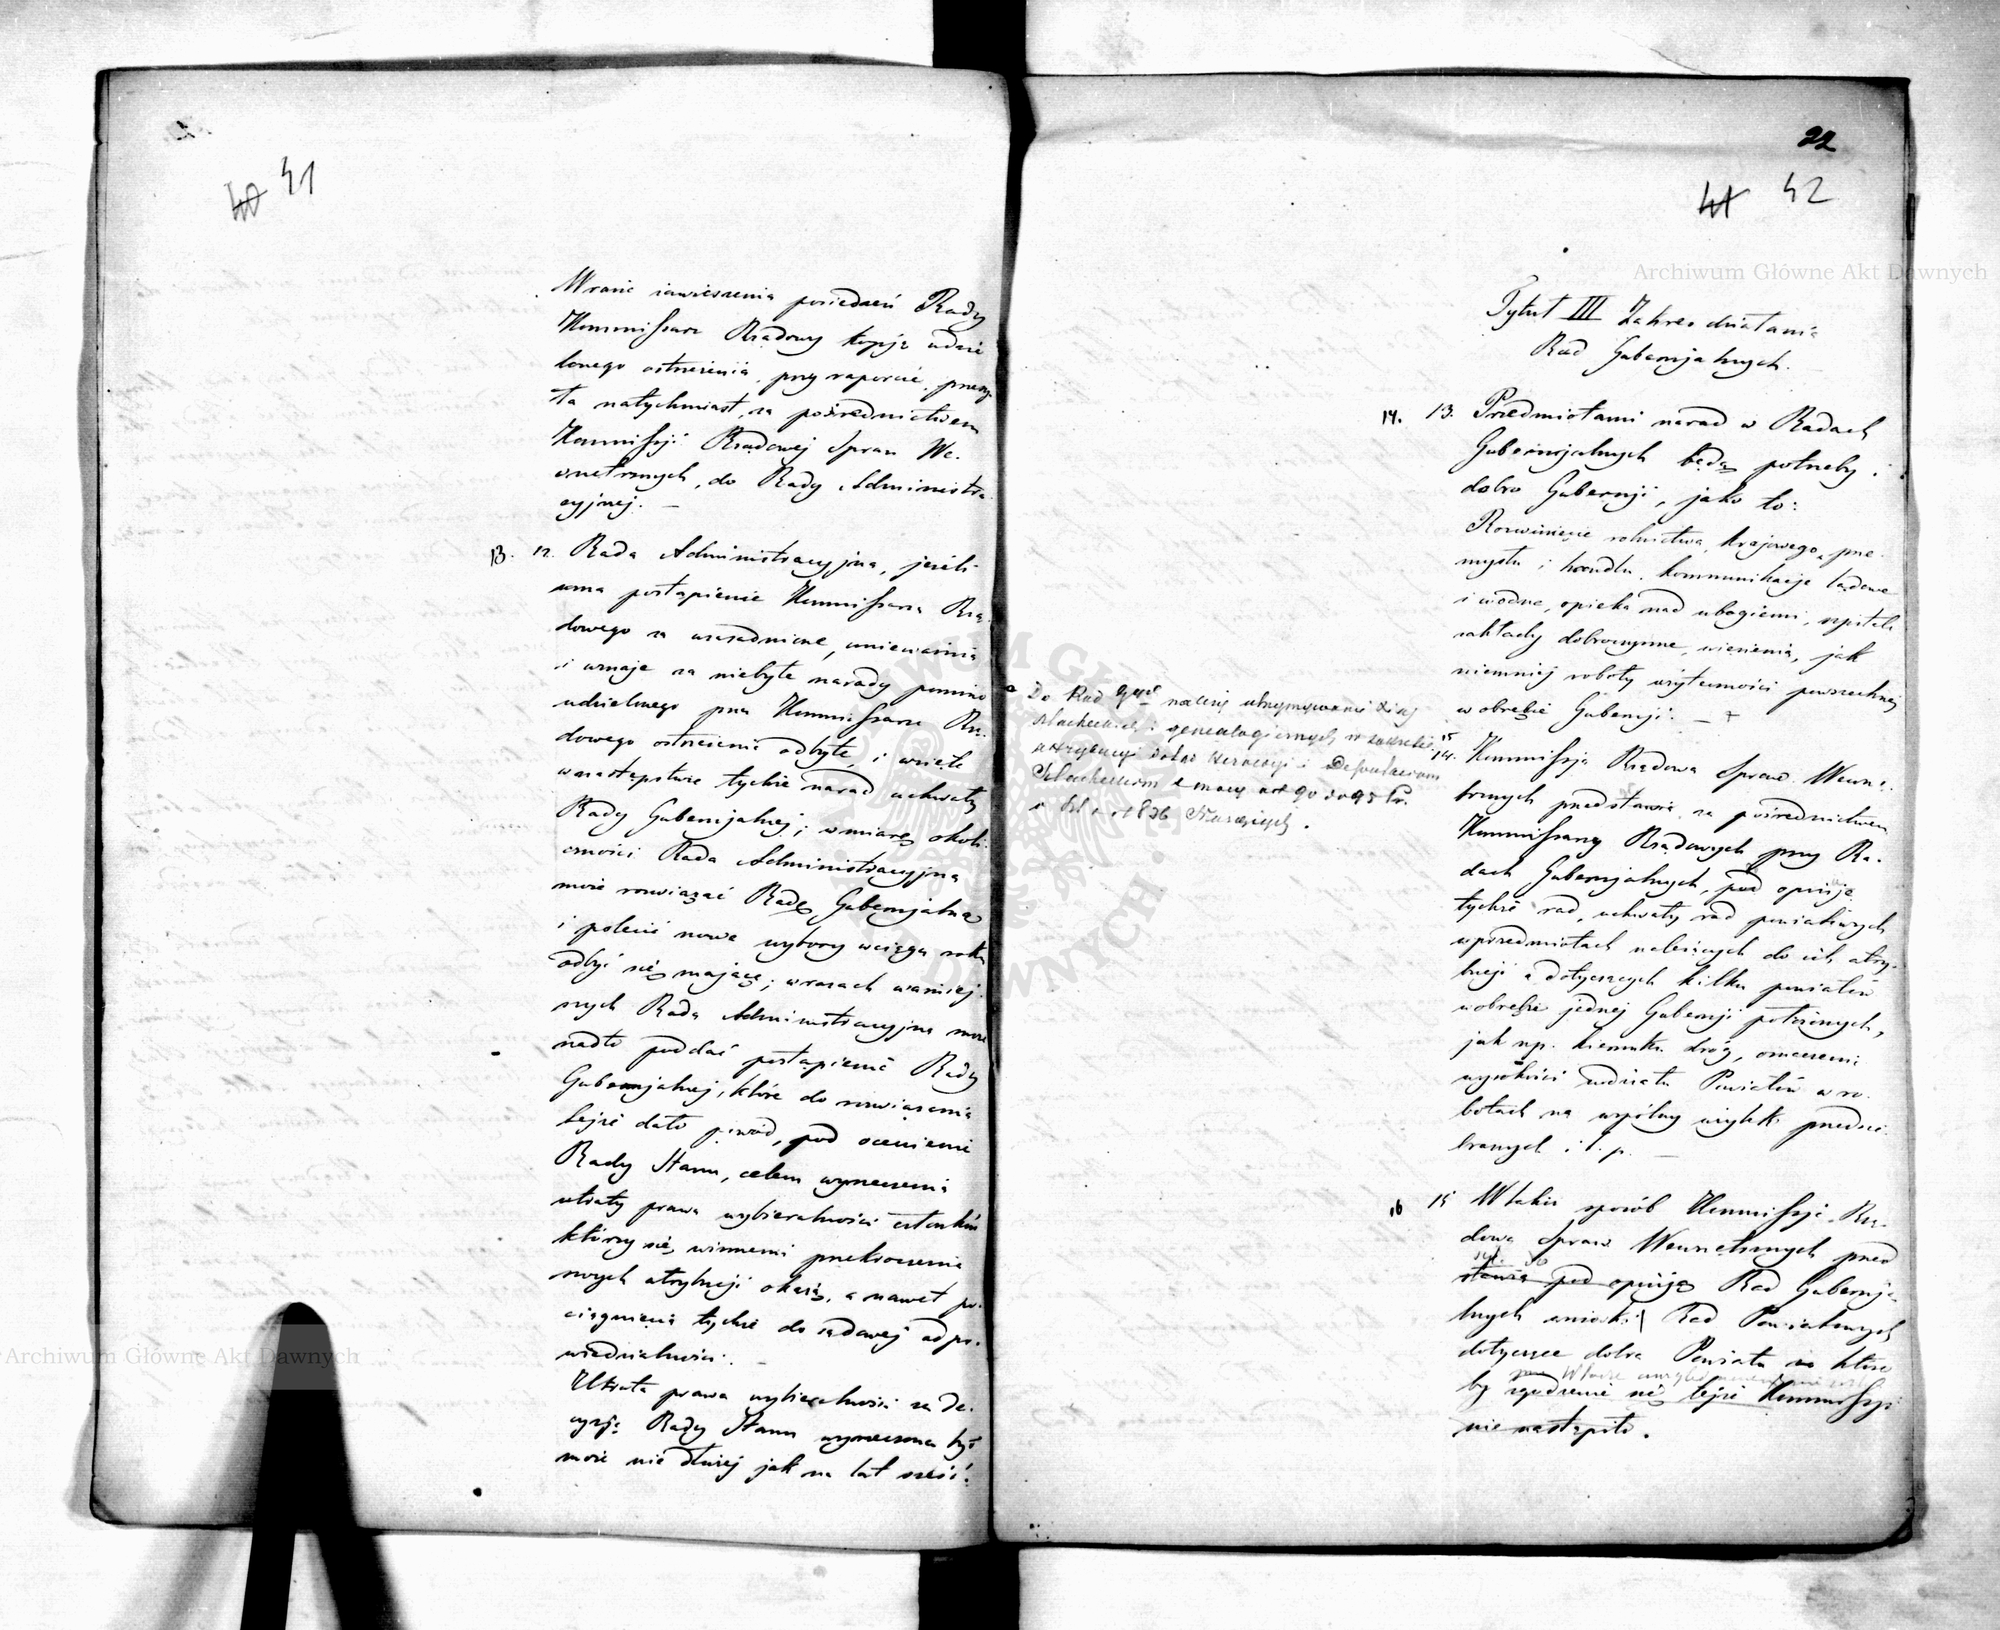 40 41
W razie zawieszenia posiedzeń Rady
Kommissarz Rządowy kopję udzie
lonego ostrzeżenia, przy raporcie, przesy
ła natychmiast, za pośrednictwem
Kommissji Rządowej Spraw We-
wnętrznych, do Rady Administra
cyjnej. —
13. 12. Rada Administracyjna, jeżeli
uzna postąpienie Kommissarza Rzą
dowego za uzasadnione, unieważnia
i uznaje za niebyłe narady pomimo
udzielonego przez Kommissarza Rzą
dowego ostrzeżenia odbyte, i wzięte
w następstwie tychże narad uchwały
Rady Gubernjalnej; w miarę okoli
czności Rada Administracyjna
może rozwiązać Radę Gubernjalną
i polecić nowe wybory w ciągu roku
odbyć się mające; w razach ważniej
szych Rada Administracyjna może
nadto poddać postąpienie Rady
Gubernjalnej, które do rozwiązania
tejże dało powód, pod ocenienie
Rady Stanu, celem wyrzeczenia
utraty prawa wybieralności członków
którzy się winnemi przekroczenia
swych atrybucji okażą, a nawet po-
ciągnienia tychże do sądowej odpo-
wiedzialności. —
Utrata prawa wybieralności za de-
cyzją Rady Stanu wyrzeczona być
może nie dłużej jak na lat sześć.
22
41 42
Tytuł III Zakres działania
Rad Gubernjalnych.
14. 13. Przedmiotami narad w Radach
Gubernjalnych będą potrzeby i
dobro Gubernji, jako to:
Rozwinięcie rolnictwa krajowego, prze
mysłu i handlu, kommunikacje lądowe
i wodne, opieka nad ubogiemi, szpitale
zakłady dobroczynne, więzienia, jak
niemniej roboty użyteczności powszechnej
w obrębie Gubernji. — +
Do Rad należy utrzymywanie ksiąg
szlacheckich i genealogicznych w zakresie
atrybucji Heroldji i Deputacjom
Szlacheckim z mocy art 90 do 95 Pr.
o Szl z r 1836 służących.
15
14. Kommissja Rządowa Spraw Wewnę-
trznych przedstawia za pośrednictwem
Kommissarzy Rządowych przy Ra-
dach Gubernjalnych, pod opinję
tychże rad, uchwały rad powiatowych
w przedmiotach należących do ich atry-
bucji a dotyczących kilku powiatów
w obrębie jednej Gubernji położonych,
jak np. kierunku dróg, oznaczeni
wysokości udziału Powiatów w ro-
botach na wspólny użytek przedsię
branych i t. p. —
16 15 W taki sposób Kommissja Rzą-
dowa Spraw Wewnętrznych przed
stawia pod opinję Rad Gubernja-
lnych wnioski Rad Powiatowych
dotyczące dobra Powiatu na które
by zgodzenie się tejże Kommissji
nie nastąpiło.
Archiwum Główne Akt Dawnych
Archiwum Główne Akt Dawnych